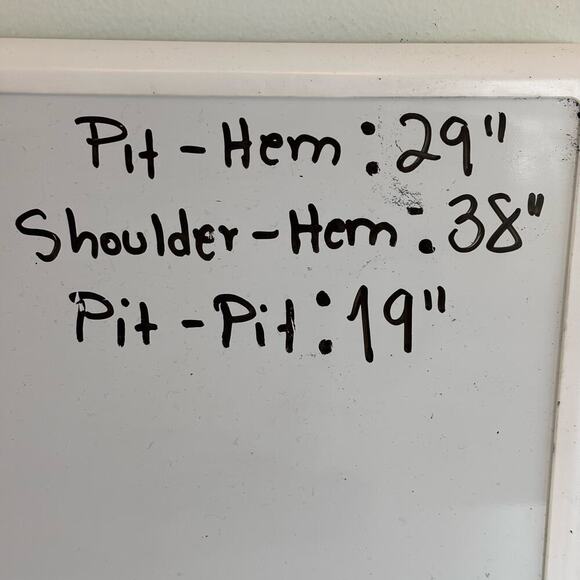 Pit - Hem : 29"
Shoulder - Hem : 38"
Pit - Pit : 19"